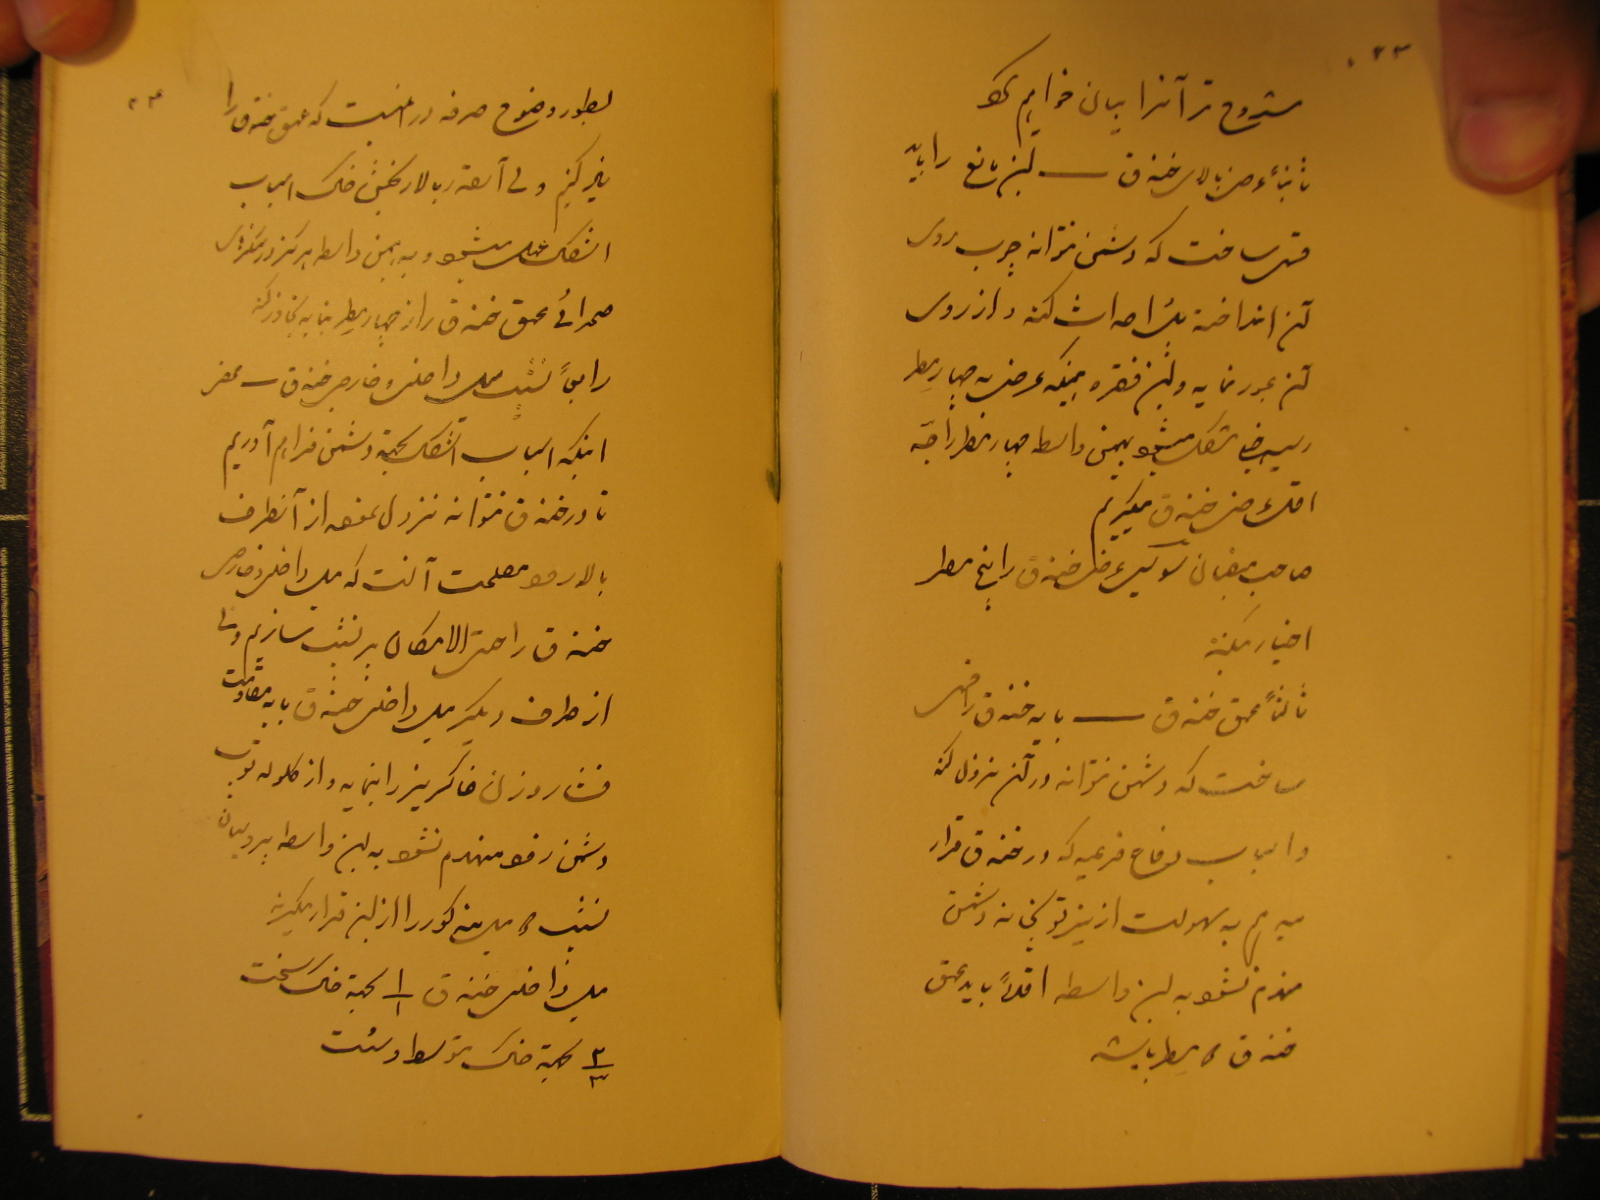 ۲۳
مشروح تر آنرا بیان خواهیم کرد
ثانیاً عرض بالای خندق — این مانع را باید
قسمی ساخت که دشمن نتواند چوب روی
آن انداخته پل احداث کند و از روی
آن عبور نماید و این فقره همینکه عرض به چهار مطر
رسید خیلی مشکل میشود بهمین واسطه چهار مطر را حد
اقل عرض خندق میگیریم
صاحب منصبان عرض خندق را پنج مطر
اختیار میکنند
ثالثاً عمق خندق — باید خندق را قسمی
ساخت که دشمن نتواند در آن نزول کند
و اسباب دفاع فرعیه که در خندق قرار
میدهیم به سهولت از تیر توپخانه دشمن
منهدم نشود به این واسطه اقلاً باید عمق
خندق ۲ مطر باشد
۲۴
بطور وضوح صرفه در اینست که عمق خندق را
زیاد کنیم ولی آنقدر بالا کشیدن خاک اسباب
اشکال عمل میشود و به همین واسطه هرگز در سنگرهای
صحرائی عمق خندق را از چهار مطر نباید تجاوز کند
رابعاً شیب میل داخلی و خارجی خندق — محض
اینکه اسباب اشکال بجهة دشمن فراهم آوریم
تا در خندق نتواند نزول نموده از آنطرف
بالا رود مصلحت آنست که میل داخلی و خارجی
خندق را حتی الامکان پر شیب بسازیم ولی
از طرف دیگر میل داخلی خندق باید مقاومت
فشار وزن خاکریز را بنماید و از گلوله توپ
دشمن زود منهدم نشود به این واسطه پیروان
شیب میل مذکور را از این قرار میگیرند
میل داخلی خندق ۱/۱ بجهة خاک سخت
۲/۳ بجهة خاک متوسط و سست